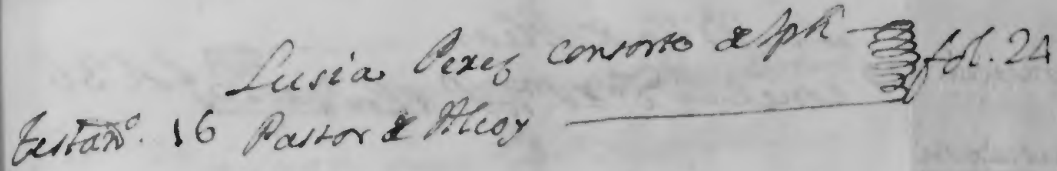 Lusia Perez consorte de Jph fol. 24
Testam.º 16 Pastor de Alcoy